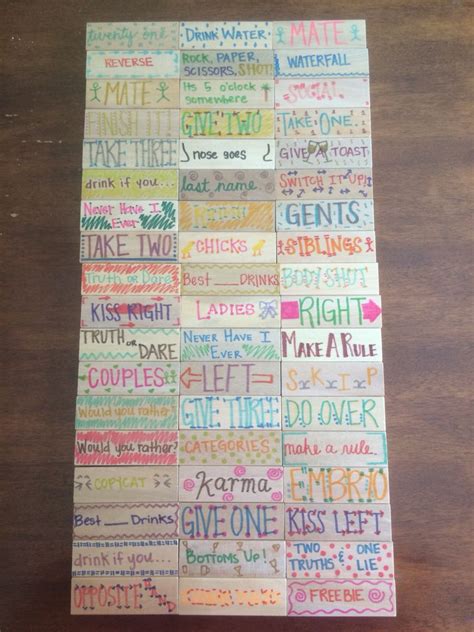 twenty one
DRINK WATER
MATE
REVERSE
ROCK, PAPER,
SCISSORS, SHOT!
WATERFALL
MATE
Its 5 o'clock
somewhere
SOCIAL
FINISH IT!
GIVE TWO
TAKE ONE...
TAKE THREE
nose goes
GIVE A TOAST
drink if you...
last name..
SWITCH IT UP!
Never Have I
Ever
GENTS
TAKE TWO
CHICKS
SIBLINGS
Truth or Dare
Best ___ DRINKS
BODY SHOT
KISS RIGHT
LADIES
RIGHT
TRUTH OR
DARE
NEVER HAVE I
EVER
MAKE A RULE
COUPLES
LEFT
SKIP
Would you rather?
GIVE THREE
DO OVER
Would you rather?
CATEGORIES
make a rule..
COPYCAT
Karma
EMBRIO
Best ___ Drinks
GIVE ONE
KISS LEFT
drink if you...
BOTTOMS UP!
TWO
TRUTHS &
ONE
LIE
OPPOSITE
FREEBIE